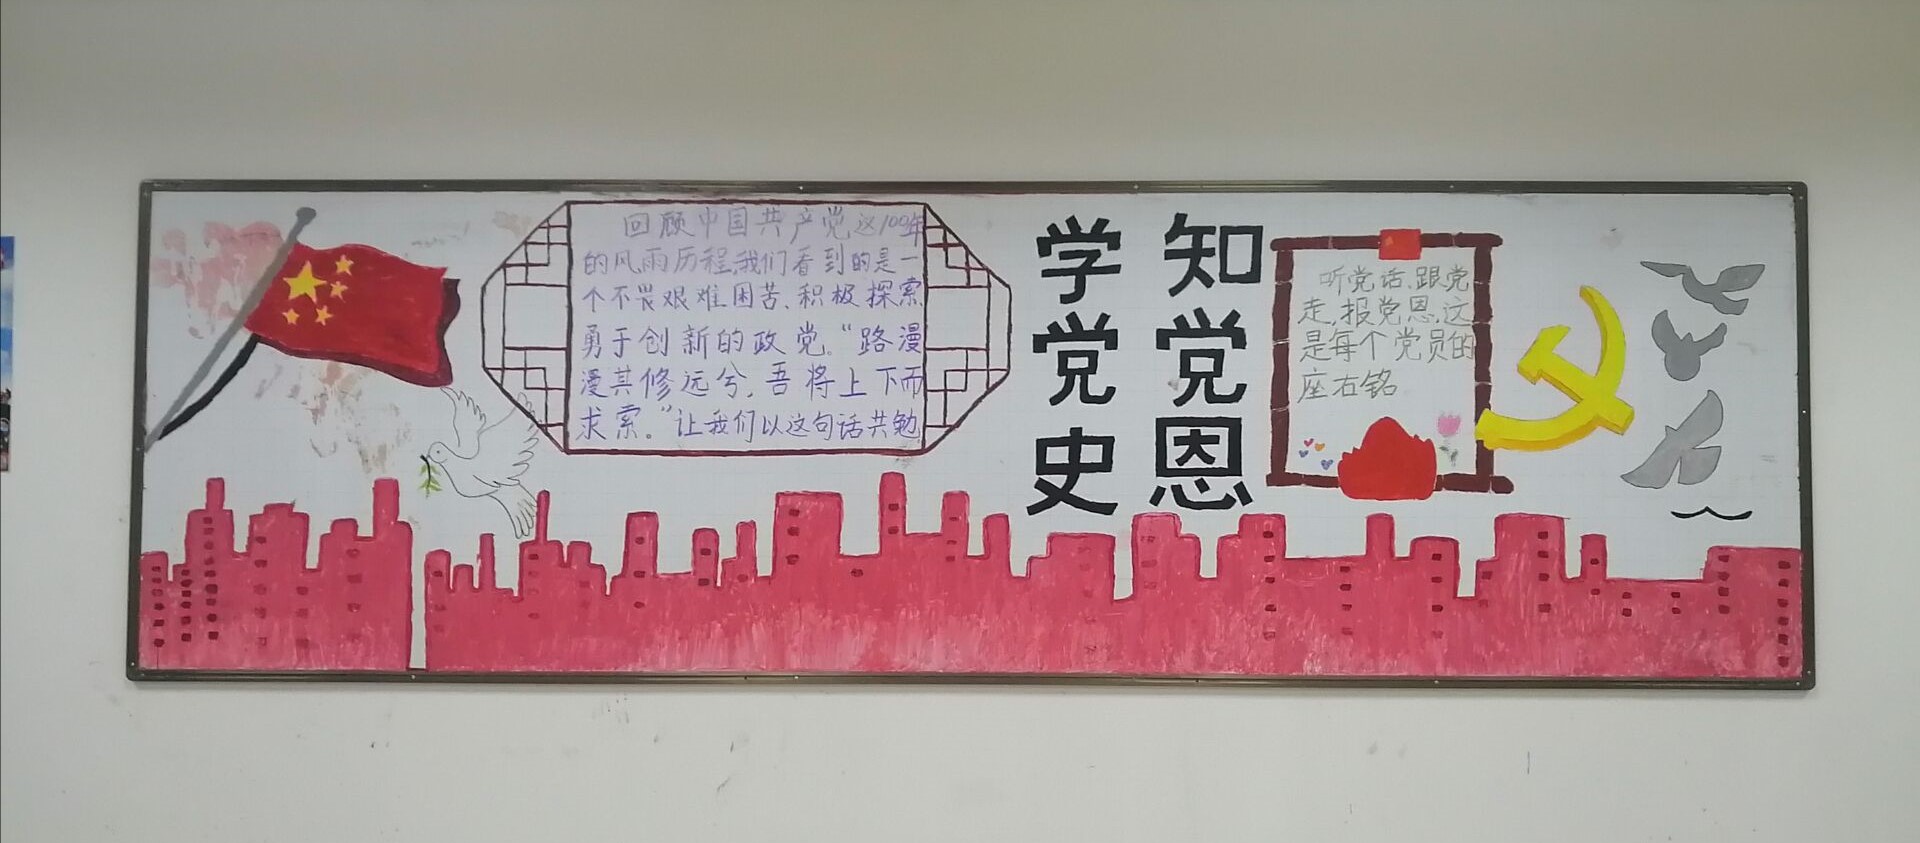 回顾中国共产党这100年
的风雨历程,我们看到的是一
个不畏艰难困苦、积极探索、
勇于创新的政党。“路漫
漫其修远兮,吾将上下而
求索。”让我们以这句话共勉
学党史
知党恩
听党话、跟党
走,报党恩,这
是每个党员的
座右铭